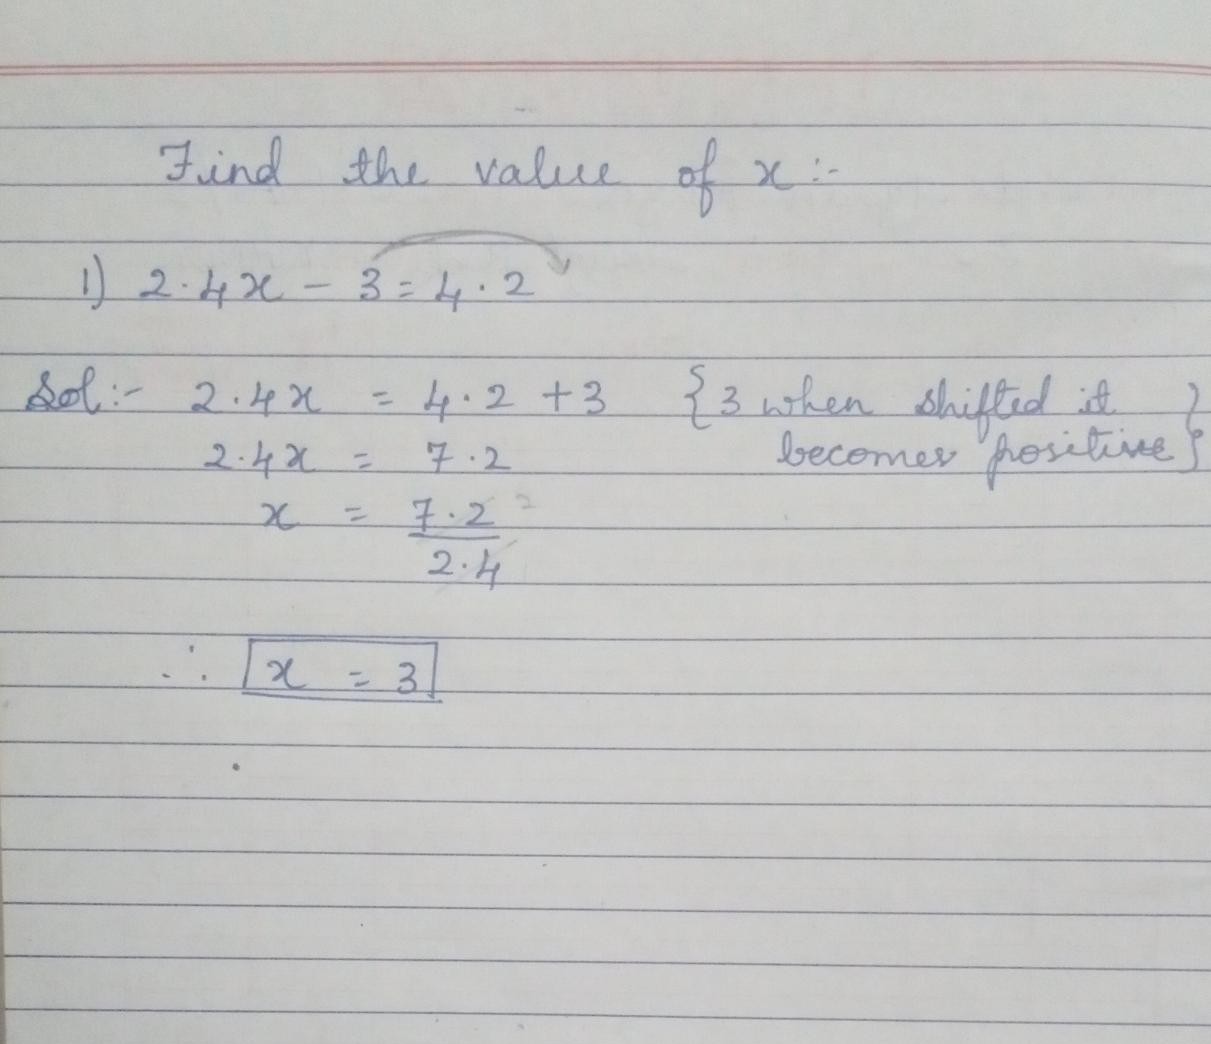 Find the value of x :-
1) 2.4x - 3 = 4.2
Sol :- 2.4x = 4.2 + 3 {3 when shifted it
becomes positive}
2.4x = 7.2
x = 7.2
2.4
∴ x = 3